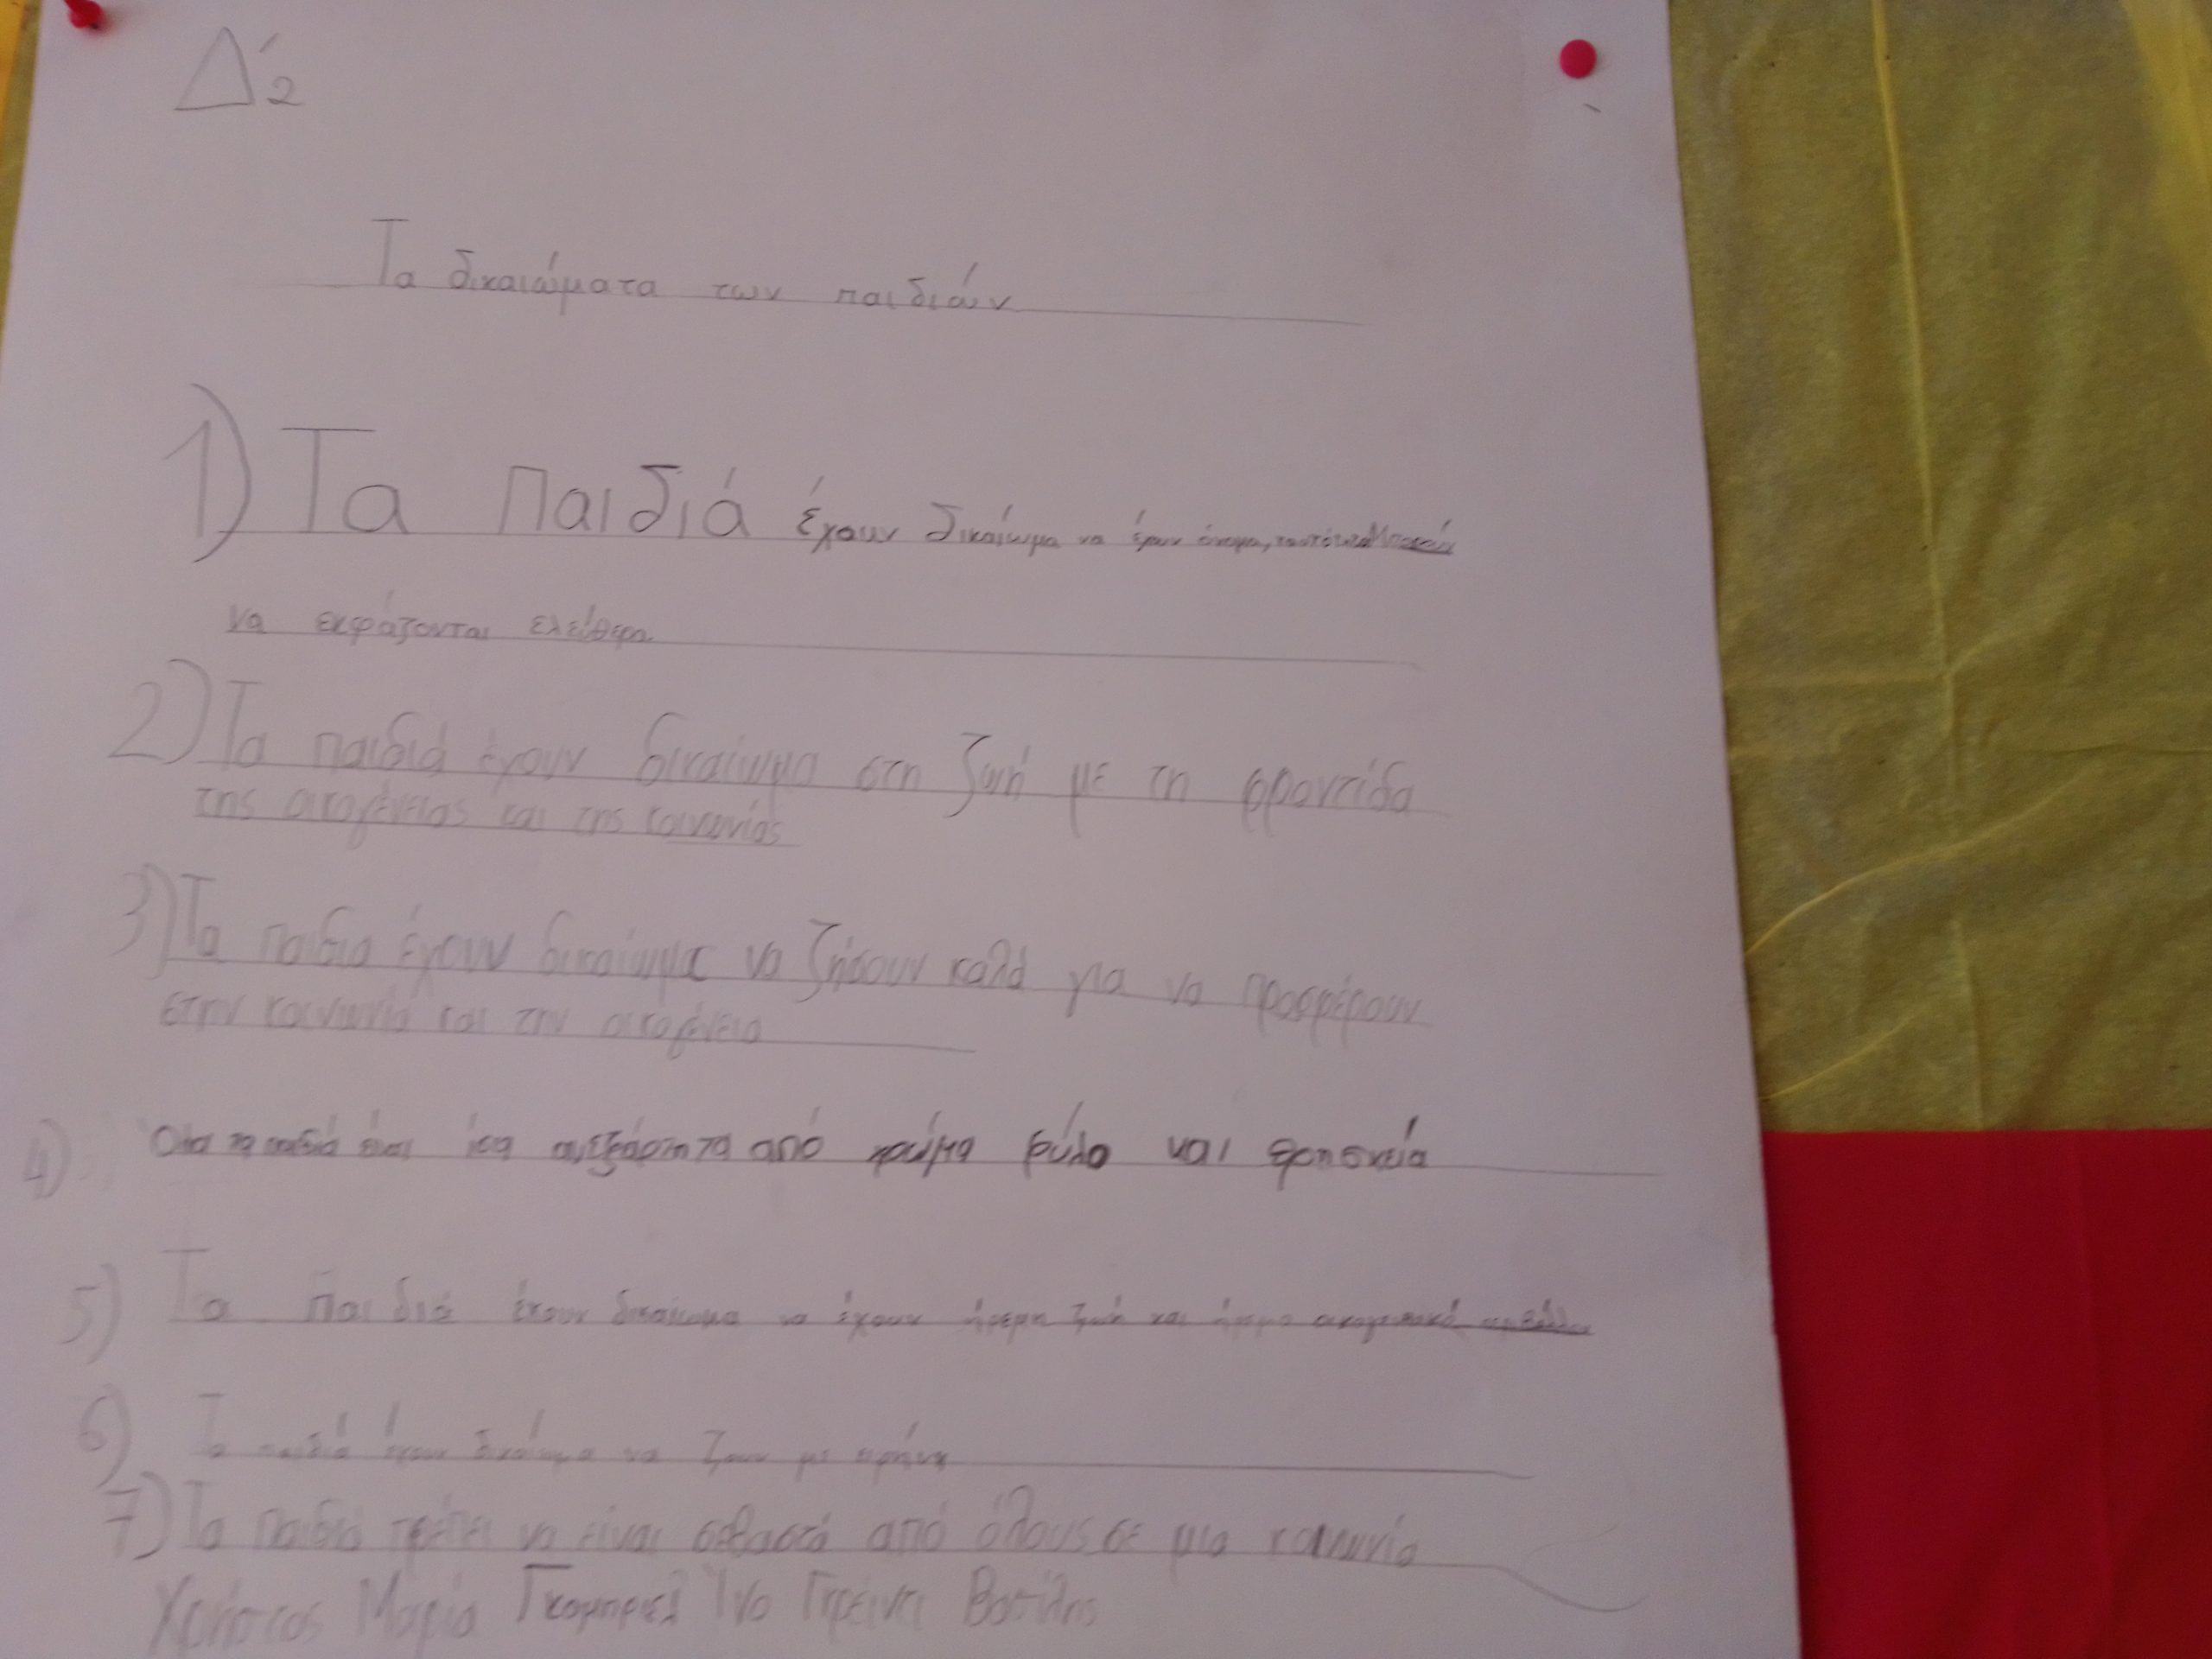 Δ'2
Τα δικαιώματα των παιδιών
1) Τα Παιδιά έχουν δικαίωμα να έχουν όνομα, ταυτότητα Μπορούν
να εκφράζονται ελεύθερα
2) Τα παιδιά έχουν δικαίωμα στη ζωή με τη φροντίδα
της οικογένειας και της κοινωνίας
3) Τα παιδια έχουν δικαίωμα να ζήσουν καλά για να προσφέρουν
στην κοινωνία και την οικογένεια
4) Ολα τα παιδιά είναι ίσα ανεξάρτητα από χρώμα φύλο και θρησκεία
5) Τα Παιδιά έχουν δικαίωμα να έχουν ήρεμη ζωή και ήρεμο οικογενειακό περιβάλλον
6) Τα παιδιά έχουν δικαίωμα να ζουν με ειρήνη
7) Τα παιδιά πρέπει να είναι σεβαστά από όλους σε μια κοινωνία
Χρήστος Μαρία Βασίλης